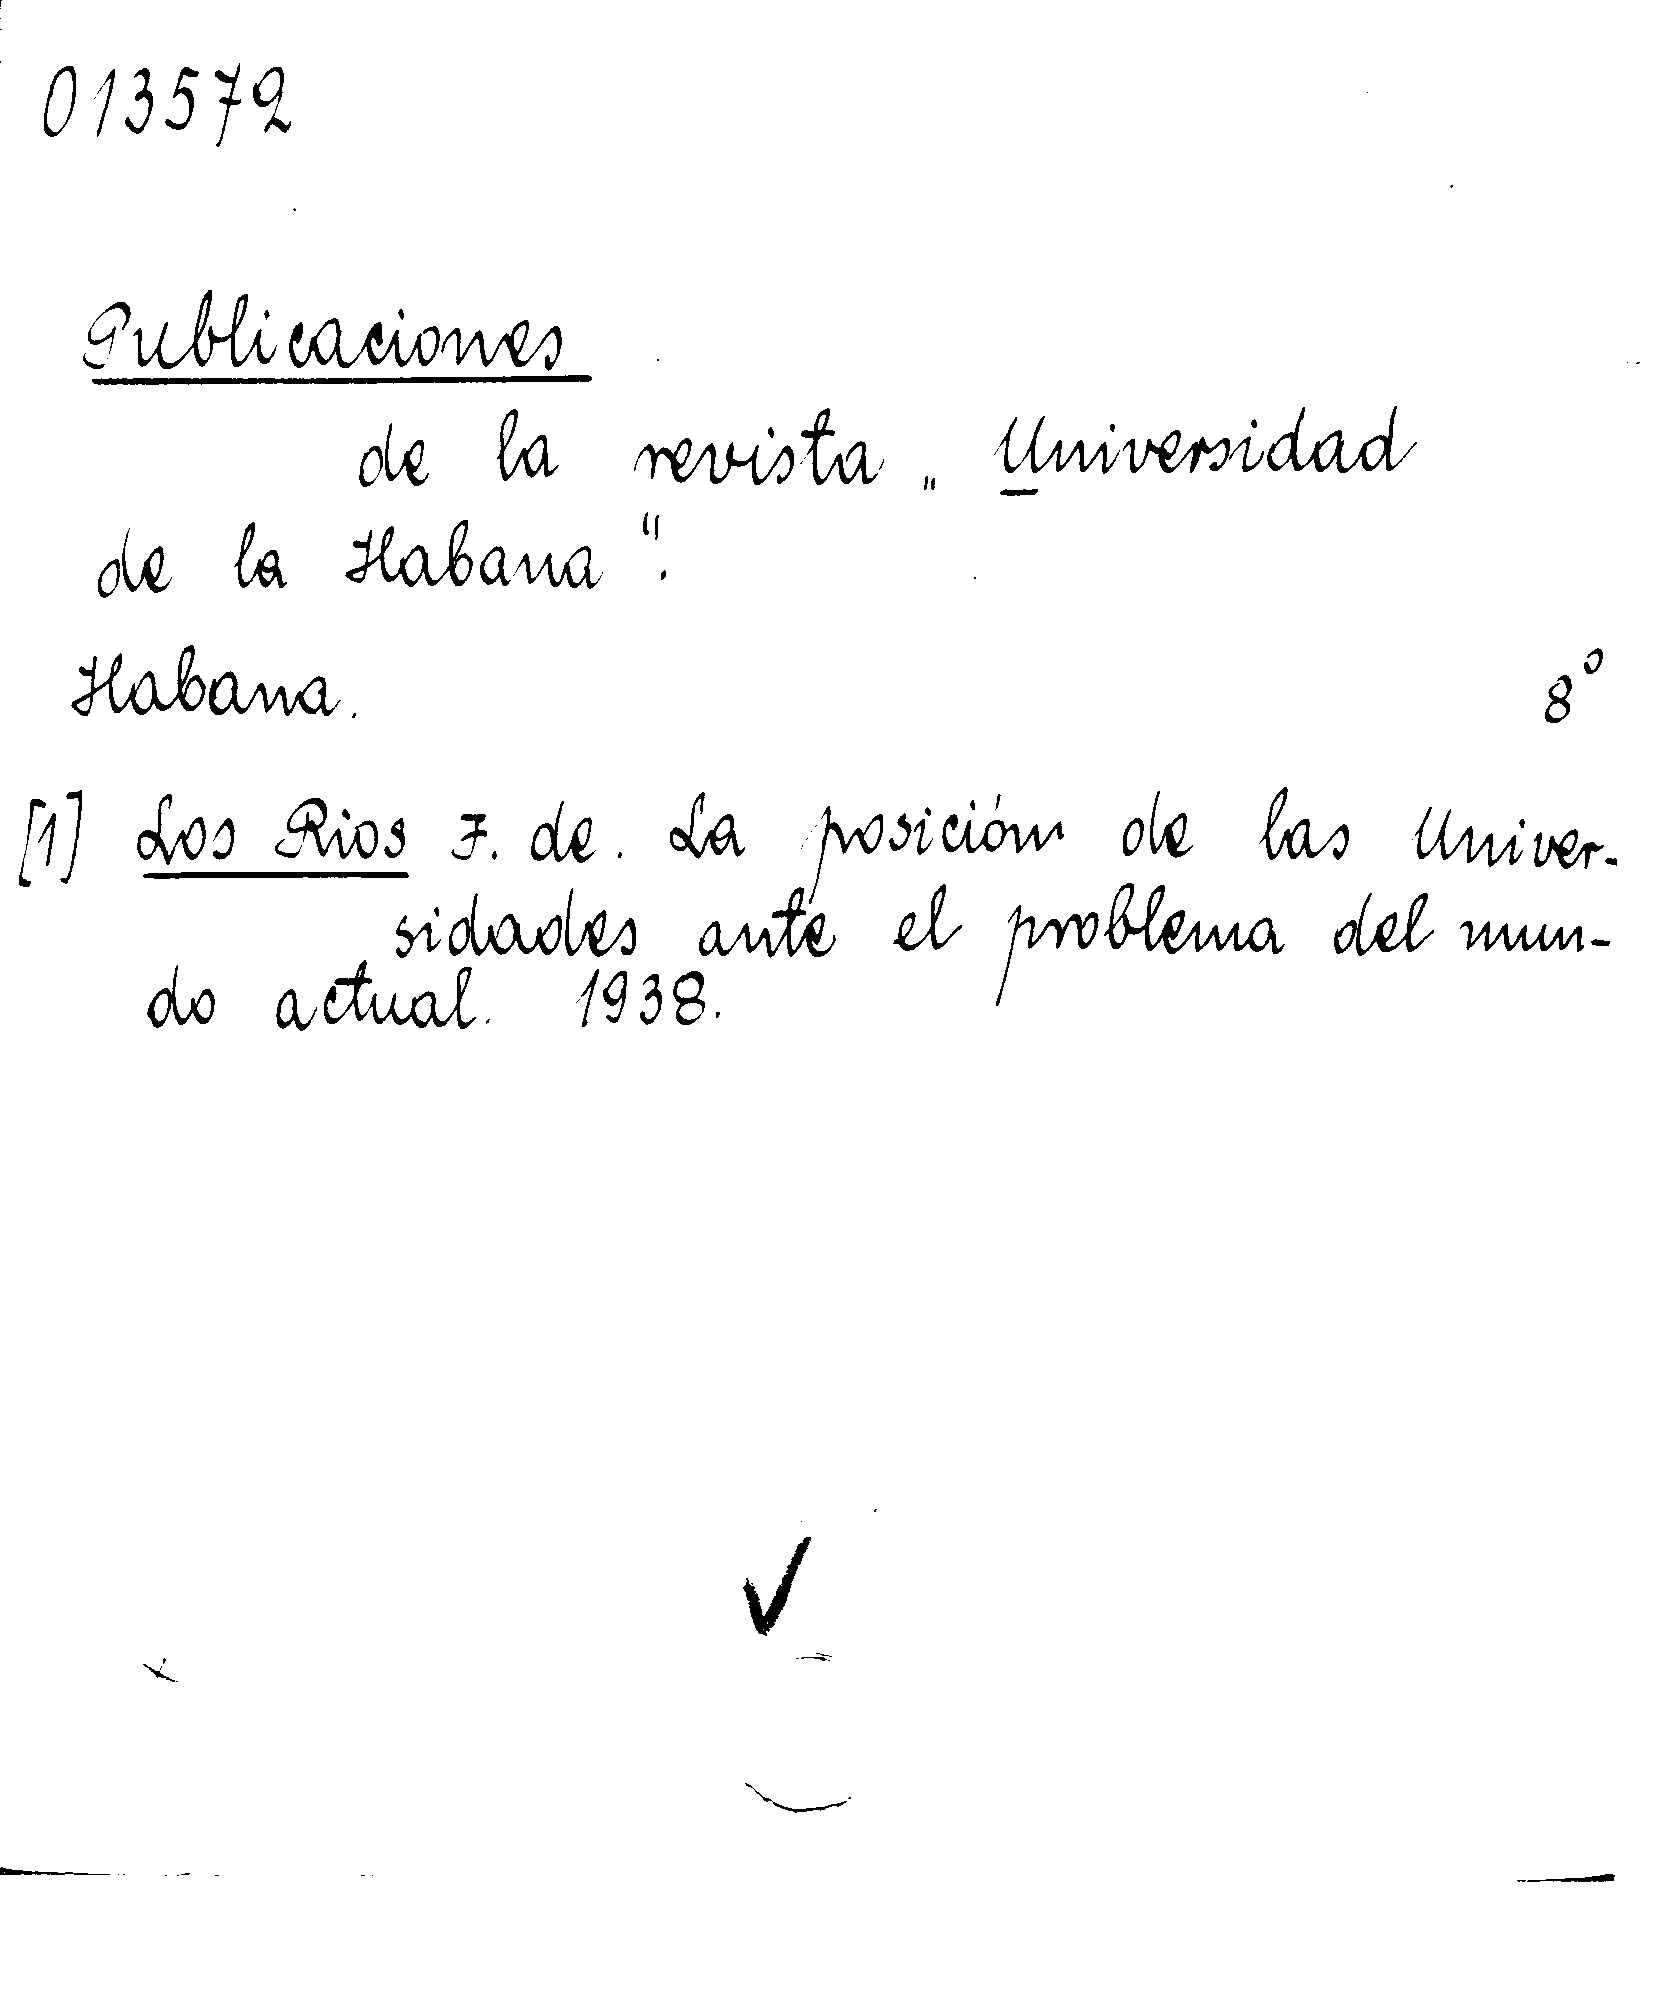 013572
Publicaciones
de la revista „Universidad
de la Habana".
Habana. 8°
[1] Los Rios F. de. La posición de las Univer-
sidades ante el problema del mun-
do actual. 1938.